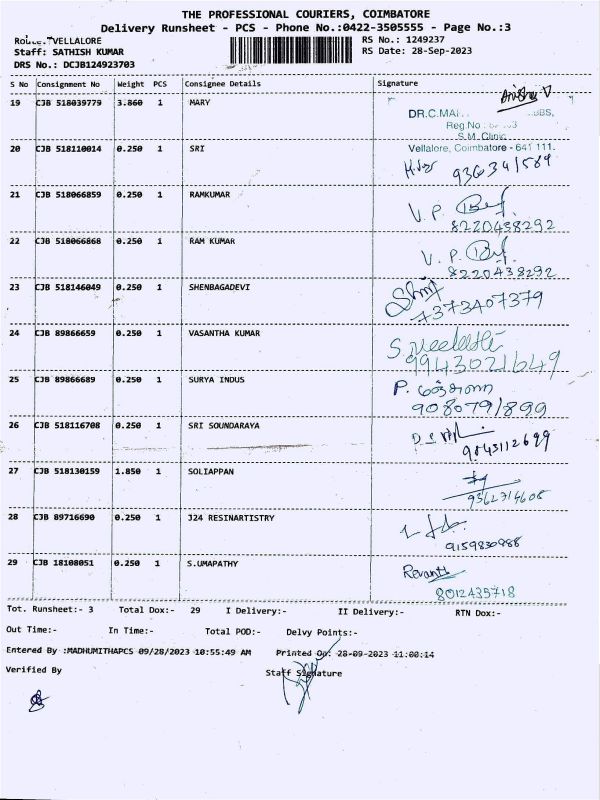 THE PROFESSIONAL COURIERS, COIMBATORE
Delivery Runsheet - PCS - Phone No.:0422-3505555 - Page No.:3
Route.:VELLALORE
RS No.: 1249237
Staff: SATHISH KUMAR
RS Date: 28-Sep-2023
DRS No.: DCJB124923703
S No Consignment No Weight PCS Consignee Details Signature
19 CJB 518039779 3.860 1 MARY
DR.C.MA
Reg.No
S.M. Clinic
20 CJB 518110014 0.250 1 SRI Vellalore, Coimbatore - 641 111.
936341589
21 CJB 518066859 0.250 1 RAMKUMAR V. P.
8220438292
22 CJB 518066868 0.250 1 RAM KUMAR V. P.
8220438292
23 CJB 518146049 0.250 1 SHENBAGADEVI
7373407379
24 CJB 89866659 0.250 1 VASANTHA KUMAR
9943021649
25 CJB 89866689 0.250 1 SURYA INDUS P.
9080791899
26 CJB 518116708 0.250 1 SRI SOUNDARAYA
9843112699
27 CJB 518130159 1.850 1 SOLIAPPAN
9362714608
28 CJB 89716690 0.250 1 J24 RESINARTISTRY
9159830988
29 CJB 18108051 0.250 1 S.UMAPATHY Revanth
8012435718
Tot. Runsheet:- 3 Total Dox:- 29 I Delivery:- II Delivery:- RTN Dox:-
Out Time:- In Time:- Total POD:- Delvy Points:-
Entered By :MADHUMITHAPCS 09/28/2023 10:55:49 AM Printed On: 28-09-2023 11:00:14
Verified By Staff Signature